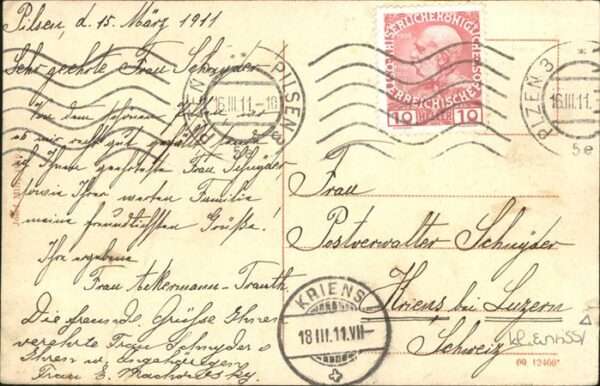 Pilsen, d. 15. März 1911
Sehr geehrte Frau Schnyder
Von dem schönen
es mir recht gut gefällt sende
ich Ihnen geehrteste Frau Schnyder,
sowie Ihrer werten Familie
meine freundlichsten Grüße!
Ihre ergebene
Frau Ackermann-Trauth.
Die freundl. Grüsse Ihnen
verehrte Frau Schnyder &
Ihren w. Angehörigen
Frau E.
PLZEN 3 PILSEN 3
16.III.11.-10
KAISERLICHEKÖNIGLICHE POST
ÖSTERREICHISCHE
10 HELLER 10
PLZEN 3
16.III.11.
5e
Frau
Postverwalter Schnyder
Kriens bei Luzern
Schweiz
KRIENS
18 III. 11. VII-
09 12460